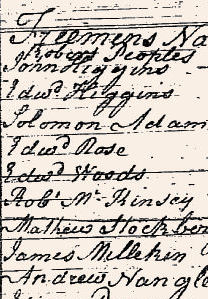 Freemens Na
Robert Peoples
John Higgins
Edwd Higgins
Solomon Adam
Edwd Rose
Edwd Woods
Robt Mc Kinsey
Mathew Stockber
James Millekin
Andrew Nangle